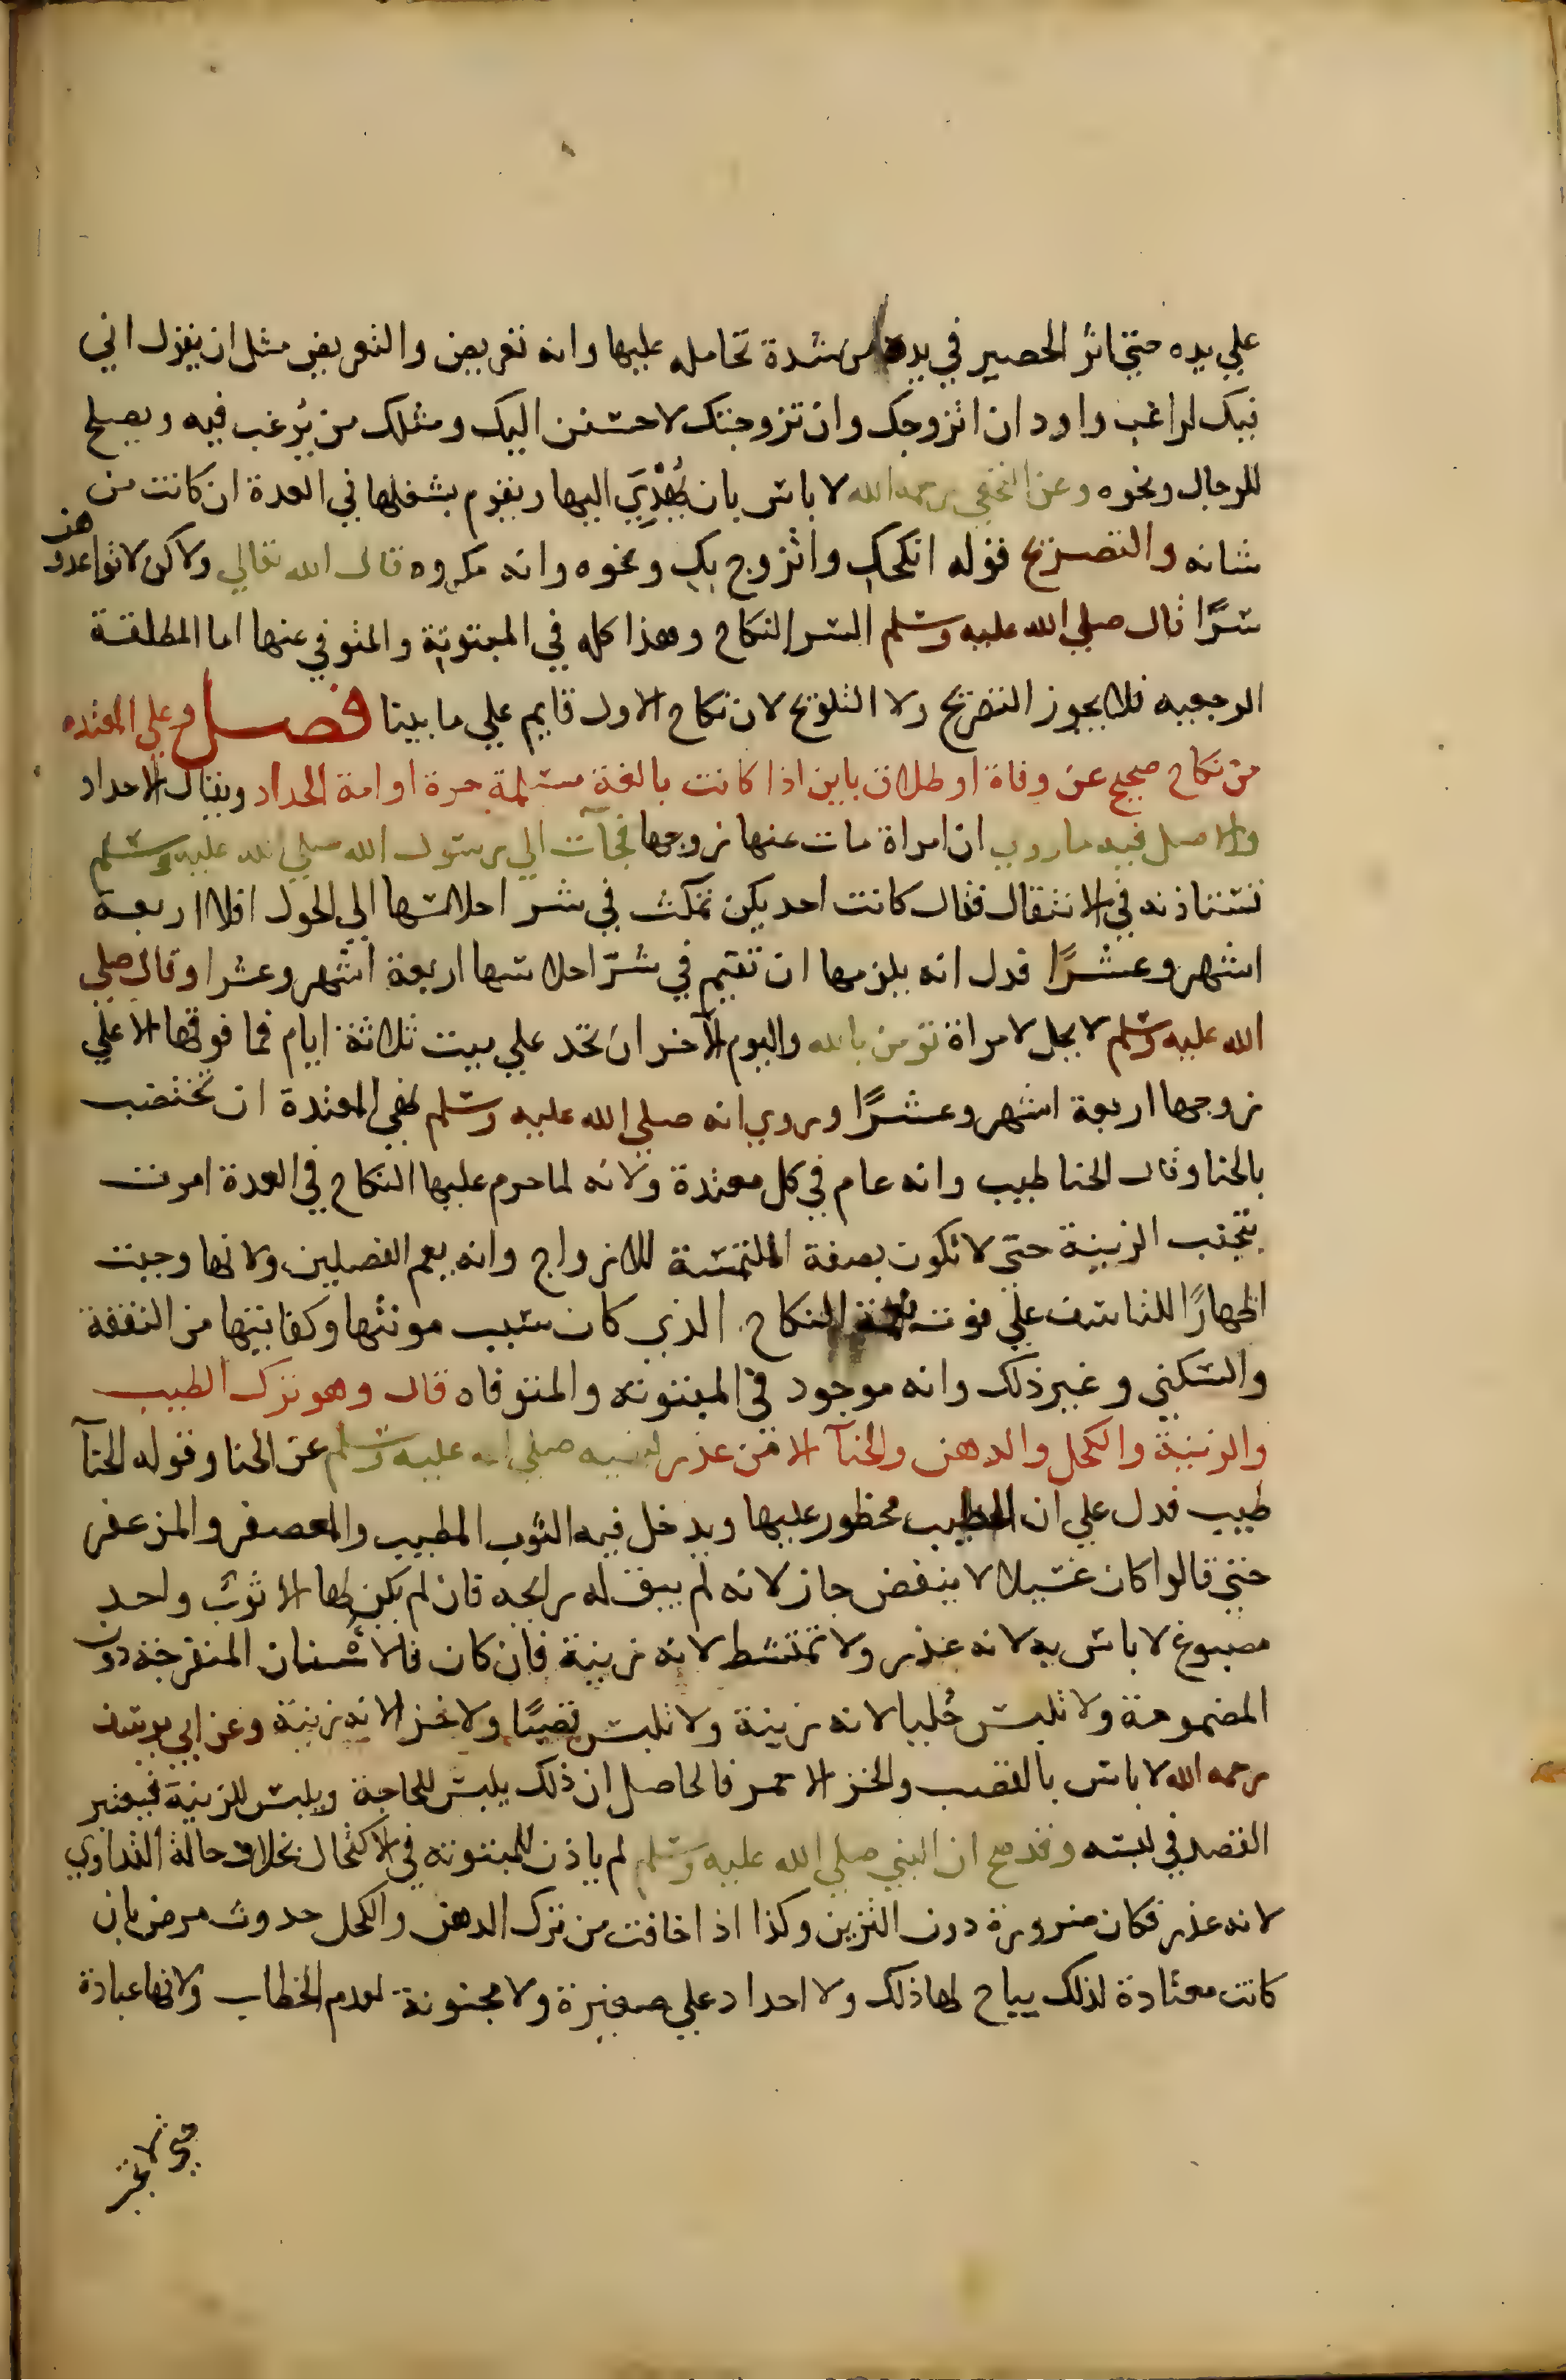 علي يده حتي اثر الحصير في يده من شدة تحامله عليها وانه تعريض والتعريض مثل ان يقول اني
فيك لراغب واود ان اتزوجك وان تزوجتك لاحسنن اليك ومثلك من يُرغب فيه ويصلح
للرجال ونحوه وعن النخعي رحمه الله لا باس بان يُهْدِيَ اليها ويقوم بشغلها في العدة ان كانت من
شانه والتصريح قوله انكحك واتزوج بك ونحوه وانه مكروه قال الله تعالي ولاكن لا تواعدوهن
سرًا قال صلي الله عليه وسلم السر النكاح وهذا كله في المبتوتة والمتوفي عنها اما المطلقة
الرجعيه فلا يجوز التصريح ولا التلويح لان نكاح الاول قايم علي ما بينا فصل وعلي المعتده
من نكاح صحيح عن وفاة او طلاق باين اذا كانت بالغة مسلمة حرة او امة الحداد ويقال الاحداد
والاصل فيه ما روي ان امراة مات عنها زوجها فجآت الي رسول الله صلي الله عليه وسلم
تستاذنه في الانتقال فقال كانت احديكن تمكث في شر احلاسها الي الحول افلا اربعة
اشهر وعشرًا فدل انه يلزمها ان تقيم في شرّ احلاسها اربعة اشهر وعشرا وقال صلي
الله عليه وسلم لا يحل لامراة تومن بالله واليوم الآخر ان تحد علي ميت ثلاثة ايام فما فوقها الا علي
زوجها اربعة اشهر وعشرًا وروي انه صلي الله عليه وسلم نهي المعتدة ان تختضب
بالحنا وقال الحنا طيب وانه عام في كل معتدة ولانه لما حرم عليها النكاح في العدة امرت
بتجنب الزينة حتي لا تكون بصفة الملتمسة للازواج وانه يعم الفصلين ولانها وجبت
اظهارًا للتاسف علي فوت نعمة النكاح الذي كان سبب مونتها وكفايتها من النفقة
والسكني وغير ذلك وانه موجود في المبتوته والمتوفاه قال وهو ترك الطيب
والزينة والكحل والدهن والحنآ الا من عذر لنهيه صلي الله عليه وسلم عن الحنا وقوله الحنآ
طيب فدل علي ان الطيب محظور عليها ويدخل فيه الثوب المطيب والمعصفر والمزعفر
حتي قالوا كان غسيلا لا ينفض جاز لانه لم يبق له رايحه فان لم يكن لها الا ثوبٌ واحد
مصبوغ لا باس به لانه عذر ولا تمتشط لانه زينة فان كان فالاسنان المنفرخة دون
المضمومة ولا تلبس حُليا لانه زينة ولا تلبس قصبًا ولا خز الانه زينة وعن ابي يوسف
رحمه الله لا باس بالقصب والخز الاحمر فالحاصل ان ذلك يلبس للحاجة ويلبس للزينة فيعتبر
القصد في لبسه وقد صح ان النبي صلي الله عليه وسلم لم ياذن للمبتوته في الاكتحال بخلاف حالة التداوي
لانه عذر فكان ضرورة دون التزين وكذا اذا خافت من ترك الدهن والكحل حدوث مرض بان
كانت معتادة لذلك يباح لها ذلك ولا احداد علي صغيرة ولا مجنونة لعدم الخطاب ولانها عبادة